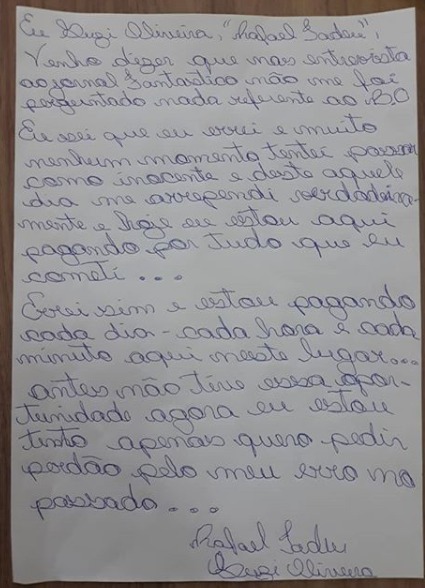 Eu Suzi Oliveira, "Rafael Tadeu",
Venho dizer que nas entrevista
ao jornal Fantastico não me foi
perguntado nada referente ao BO
Eu sei que eu errei e muito
nenhum momento tentei passar
como inocente e deste aquele
dia me arrependi verdadeira-
mente e hoje eu estou aqui
pagando por tudo que eu
cometi...
Errei sim e estou pagando
cada dia - cada hora e cada
minuto aqui neste lugar...
antes não tive essa opor-
tunidade agora eu estou
tisto apenas quero pedir
perdão pelo meu erro no
passado...
Rafael Tadeu
Suzi Oliveira